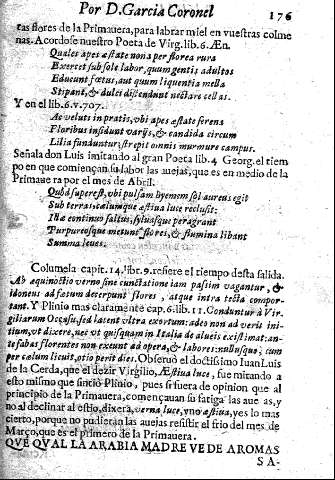 Por D. Garcia Coronel 176
tas flores de la Primauera, para labrar miel en vuestras colme
nas. Acordose nuestro Poeta de Virg. lib. 6. Æn.
Quales apes æstate noua per florea rura
Exercet sub sole labor, quum gentis adultos
Educunt fœtus, aut quum liquentia mella
Stipant, & dulci distendunt nectare cellas.
Y en el lib. 6. v. 707.
Ac veluti in pratis, vbi apes æstate serena
Floribus insidunt varijs, & candida circum
Lilia funduntur, strepit omnis murmure campus.
Señala don Luis imitando al gran Poeta lib. 4 Georg. el tiem
po en que comiençan su labor las auejas, que es en medio de la
Primauera por el mes de Abril.
Quod superest, vbi pulsam hyemem sol aureus egit
Sub terras, cælumque æstiua luce reclusit:
Illæ continuo saltus, syluasque peragrant
Purpureosque metunt flores, & flumina libant
Summa leues.
Columela capit. 14. libr. 9. refiere el tiempo desta salida.
Ab æquinoctio verno sine cunctatione iam passim vagantur, &
idoneos ad fœtum decerpunt flores, atque intra tecta compor-
tant. Y Plinio mas claramente cap. 6. lib. 11. Conduntur à Vir-
giliarum Occasu, sed latent vltra exortum: adeo non ad verit ini-
tium, vt dixere, nec vt quisquam in Italia de alueis existimat: an-
te fabas florentes non exeunt ad opera, & labores: nullusque, cum
per cælum licuit, otio perit dies. Obseruò el doctissimo Iuan Luis
de la Cerda, que el dezir Virgilio, Æstiua luce, fue mirando a
esto mismo que sintiò Plinio, pues si fuera de opinion que al
principio de la Primauera, començauan su fatiga las auejas, y
no al declinar al estio, dixera, verna luce, y no æstiua, yes lo mas
cierto, porque no pudieran las auejas resistir el frio del mes de
Março, que es el primero de la Primauera.
QVE QVAL LA ARABIA MADRE VE DE AROMAS
SA-